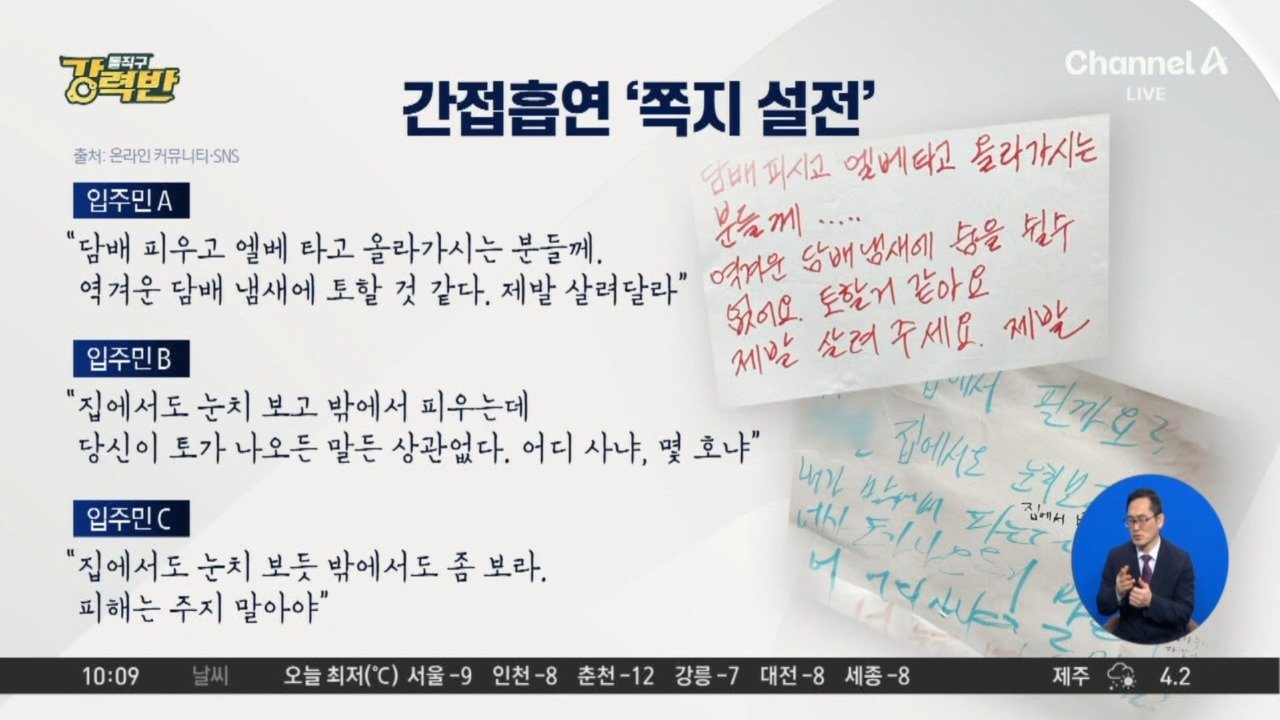 돌직구
강력반
Channel A
LIVE
간접흡연 ‘쪽지 설전’
출처: 온라인 커뮤니티·SNS
입주민 A
“담배 피우고 엘베 타고 올라가시는 분들께.
역겨운 담배 냄새에 토할 것 같다. 제발 살려달라”
입주민 B
“집에서도 눈치 보고 밖에서 피우는데
당신이 토가 나오든 말든 상관없다. 어디 사냐, 몇 호냐”
입주민 C
“집에서도 눈치 보듯 밖에서도 좀 보라.
피해는 주지 말아야”
담배 피시고 엘베타고 올라가시는
분들께 .....
역겨운 담배냄새에 숨을 쉴수
없어요. 토할거 같아요
제발 살려 주세요. 제발
집에서 필까요?
집에서도 눈치보
내가 밖에서 피는
집에서
니가 토가 나오든
어디 사냐
10:09 날씨 오늘 최저(℃) 서울 -9 인천 -8 춘천 -12 강릉 -7 대전 -8 세종 -8 제주 4.2